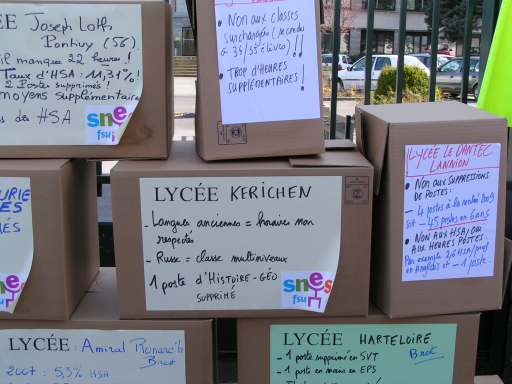 ÉE Joseph Loth
Pontivy (56)
il manque 22 heures !
Taux d'HSA : 11,34% !
2 Postes supprimés !
moyens supplémentaires
des HSA
snes
fsu
• Non aux classes
surchargées (
34/35 élèves) !!
• TROP D'HEURES
SUPPLÉMENTAIRES !
LYCÉE LE DANTEC
LANNION
• NON AUX SUPPRESSIONS
DE POSTES :
- 4 postes à la rentrée
soit - 45 postes en 6 ans
• NON AUX HSA / OUI
AUX HEURES POSTES.
Par exemple 2,6 HSA/prof
en Anglais et - 1 poste.
LYCÉE KERICHEN
- Langues anciennes = horaires non
respectés
- Russe = classe multiniveaux
1 poste d'HISTOIRE-GÉO
SUPPRIMÉ
snes
fsu
URIE
ES
MÉS
sne
fsu
LYCÉE : Amiral Ronarc'h
Brest
2007 : 5,3% HSA
LYCÉE HARTELOIRE
- 1 poste supprimé en SVT
Brest
- 1 poste en moins en EPS